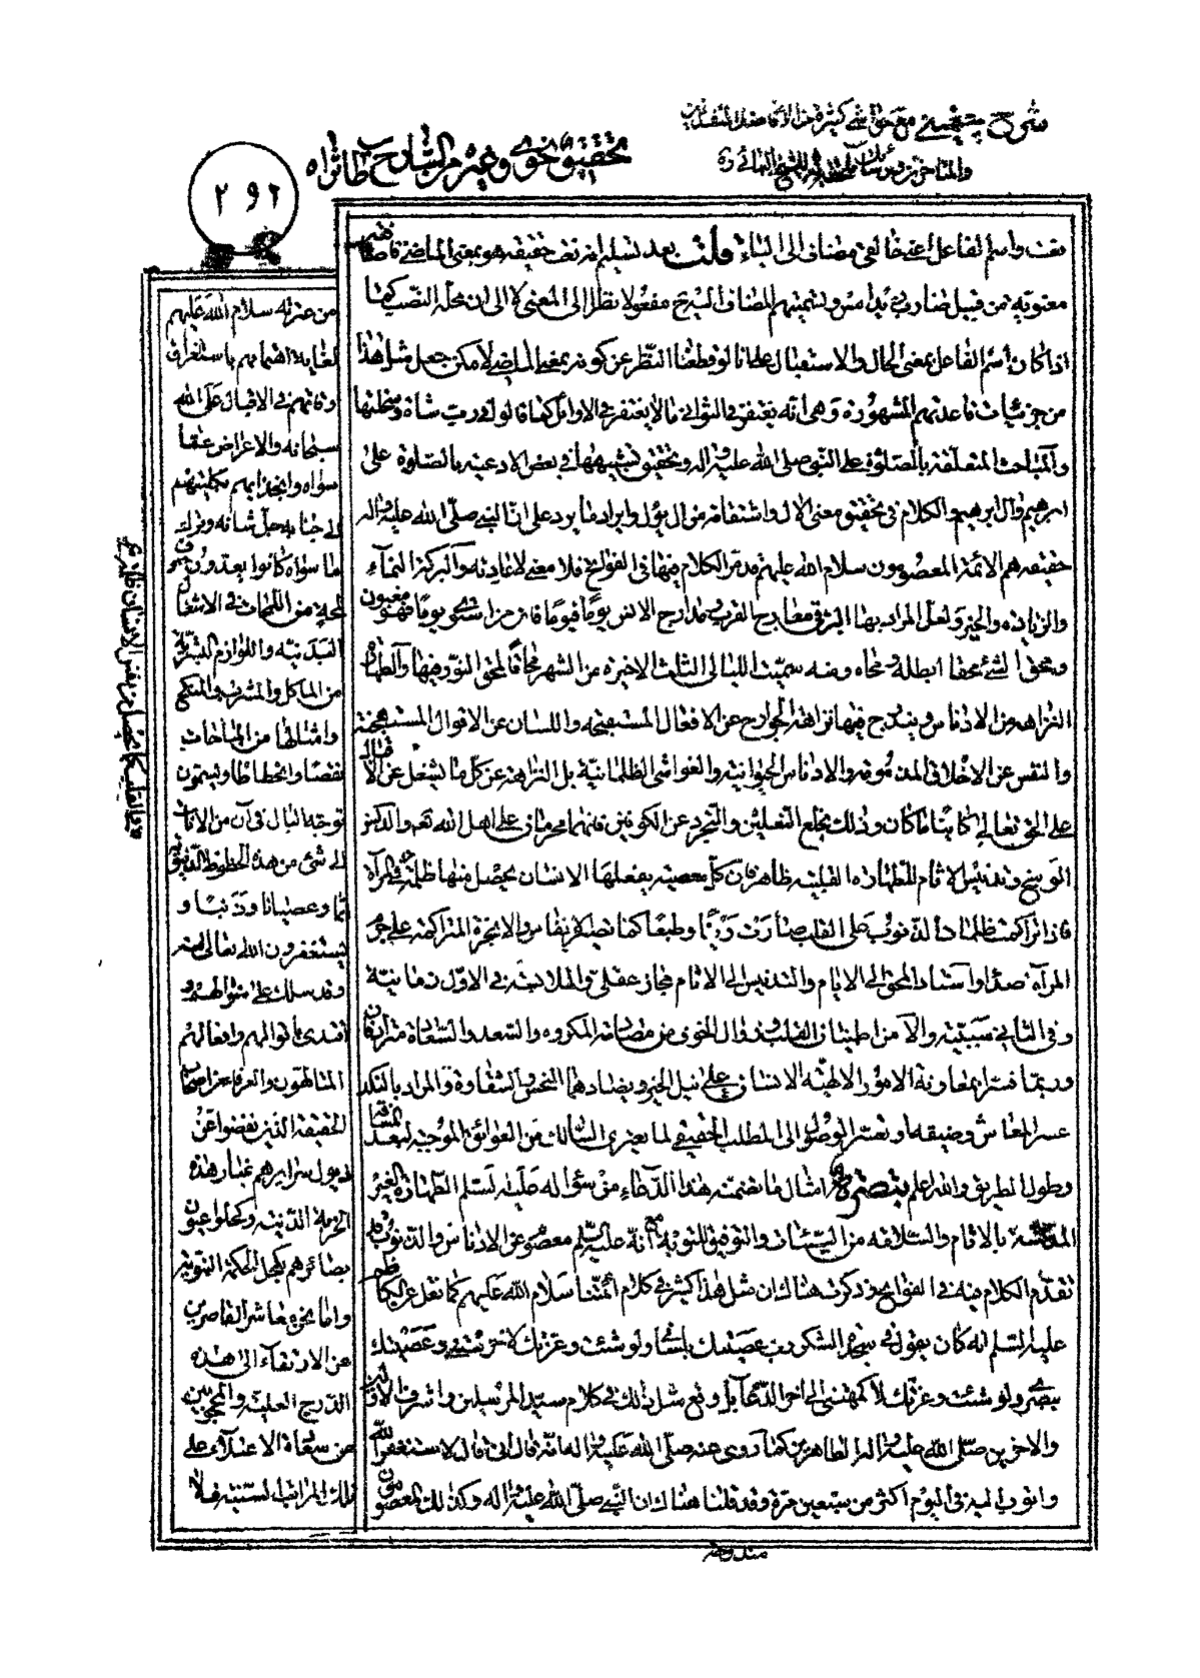 شرح چغمینی مع حواشی کثیرة من الافاضل المتقدمین
والمتأخرین للشیخ البهائی ره
تحقیق وغیرهم الشارح طاب ثراه
٢٩٢
واسم الفاعل اعنی خالقی مضاف الی الیاء قلت بعد تسلیم هو بمعنی الماضی
معنویة من قبیل ضارب زید امس وتسمیتهم المضاف الیه مفعولا نظرا الی المعنی لا الی ان محله النصب کما
اذا کان اسم الفاعل بمعنی الحال والاستقبال علی انا لو قطعنا النظر عن کونه بمعنی الماضی لامکن جعل مثل هذا
من جزئیات قاعدتهم المشهورة وهی انه یغتفر فی الثوانی ما لا یغتفر فی الاوائل کما قالوا فی رب شاة وسخلتها
والمباحث المتعلقة بالصلوة علی النبی صلی الله علیه واله وتحقیق تشبیهها فی بعض الادعیة بالصلوة علی
ابرهیم وال ابرهیم والکلام فی تحقیق معنی الال واشتقاقه من ال یؤل وایراد ما یرد علی ان النبی صلی الله علیه واله
حقیقة هم الائمة المعصومون سلام الله علیهم قد مر الکلام فیها فی الفواتح فلا معنی لاعادته والبرکة النماء
والزیادة والخیر ولعل المراد بها الترقی فی معارج القرب ومدارج الانس یوما فیوما فان من استوی یوماه فهو مغبون
ومحق الشئ محقا ابطله ومحاه ومنه سمیت اللیالی الثلث الاخیرة من الشهر محاقا لمحق النور فیها والطهارة
النزاهة من الادناس ویندرج فیها نزاهة الجوارح عن الافعال المستقبحة واللسان عن الاقوال المستهجنة
والنفس عن الاخلاق المذمومة والادناس الجسمانیة والغواشی الظلمانیة بل النزاهة عن کل ما یشغل عن الاقبال
علی الحق تعالی کائنا ما کان وذلک بخلع النعلین والتجرد عن الکونین فانهما محرمان علی اهل الله تعم والدنس
الوسخ وتدنیس الاثام للطهارة القلبیة ظاهر فان کل معصیة یفعلها الانسان یحصل منها ظلمة فی المرآة
فاذا تراکمت ظلمات الذنوب علی القلب صارت رینا وطبعا کما تصیر الانفاس والابخرة المتراکمة علی جرم
المرآة صدا واسناد المحق الی الایام والتدنیس الی الاثام مجاز عقلی والملابسة فی الاول زمانیة
وفی الثانی سببیة والامن اطمینان القلب وزوال الخوف من مصادفة المکروه والسعد والسعادة مترادفان
وربما فسرا بمعاونة الامور الالهیة الانسان علی نیل الخیر ویضادهما النحس والشقاوة والمراد بالنکد
عسر المعاش وضیقه او تعسر الوصول الی المطلب الحقیقی لما یعتری السالک من العوائق الموجبة لبعد المسافة
وطول الطریق والله اعلم تبصرة امثال ما تضمنته هذا الدعاء من سؤاله علیه السلم الطهارة الغیر
المدنسة بالاثام والسلامة من السیئات والتوفیق للتوبة مع انه علیه السلم معصوم عن الادناس والذنوب قد
تقدم الکلام فیه فی الفواتح وذکرت هناک ان مثل هذا کثیر فی کلام ائمتنا سلام الله علیهم کما نقل عن الکاظم
علیه السلم انه کان یقول فی سجدة الشکر رب عصیتک بلسانی ولو شئت وعزتک لاخرستنی وعصیتک
ببصری ولو شئت وعزتک لاکمهتنی الی اخر الدعاء بل وقع مثل ذلک فی کلام سید المرسلین واشرف الاولین
والاخرین صلی الله علیه واله الطاهرین کما روی عنه صلی الله علیه واله انه قال انی لاستغفر الله
واتوب الیه فی الیوم اکثر من سبعین مرة وقد قلنا هناک ان النبی صلی الله علیه واله وکذلک المعصومون
من عترته سلام الله علیهم
لغایة اهتمامهم باستغراق
اوقاتهم فی الاقبال علی الله
سبحانه والاعراض عما
سواه وانجذابهم بکلیتهم
الی جنابه جل شانه وترک
ما سواه کانوا یعدون صرف
لمحة من اللمحات فی الاشغال
البدنیة واللوازم البشریة
من المأکل والمشرب والمنکح
وامثالها من المباحات
نقصا وانحطاطا ویسمون
توجه البال فی آن من الانات
الی شئ من هذه الحظوظ الدنیویة
اثما وعصیانا وذنبا و
یستغفرون الله تعالی منه
وقد سلک علی منوالهم و
اقتدی باقوالهم وافعالهم
المتالهون والعرفاء من اصحاب
الحقیقة الذین نفضوا عن
ذیول سرایرهم غبار هذه
الخربة الدنیة وکحلوا عیون
بصائرهم بکحل الحکمة النبویة
واما نحن معاشر القاصرین
عن الارتقاء الی هذه
الدرج العلیة والمحجوبین
عن سعادة الاعتلاء علی
تلک المراتب السنیة فلا
مندوحة